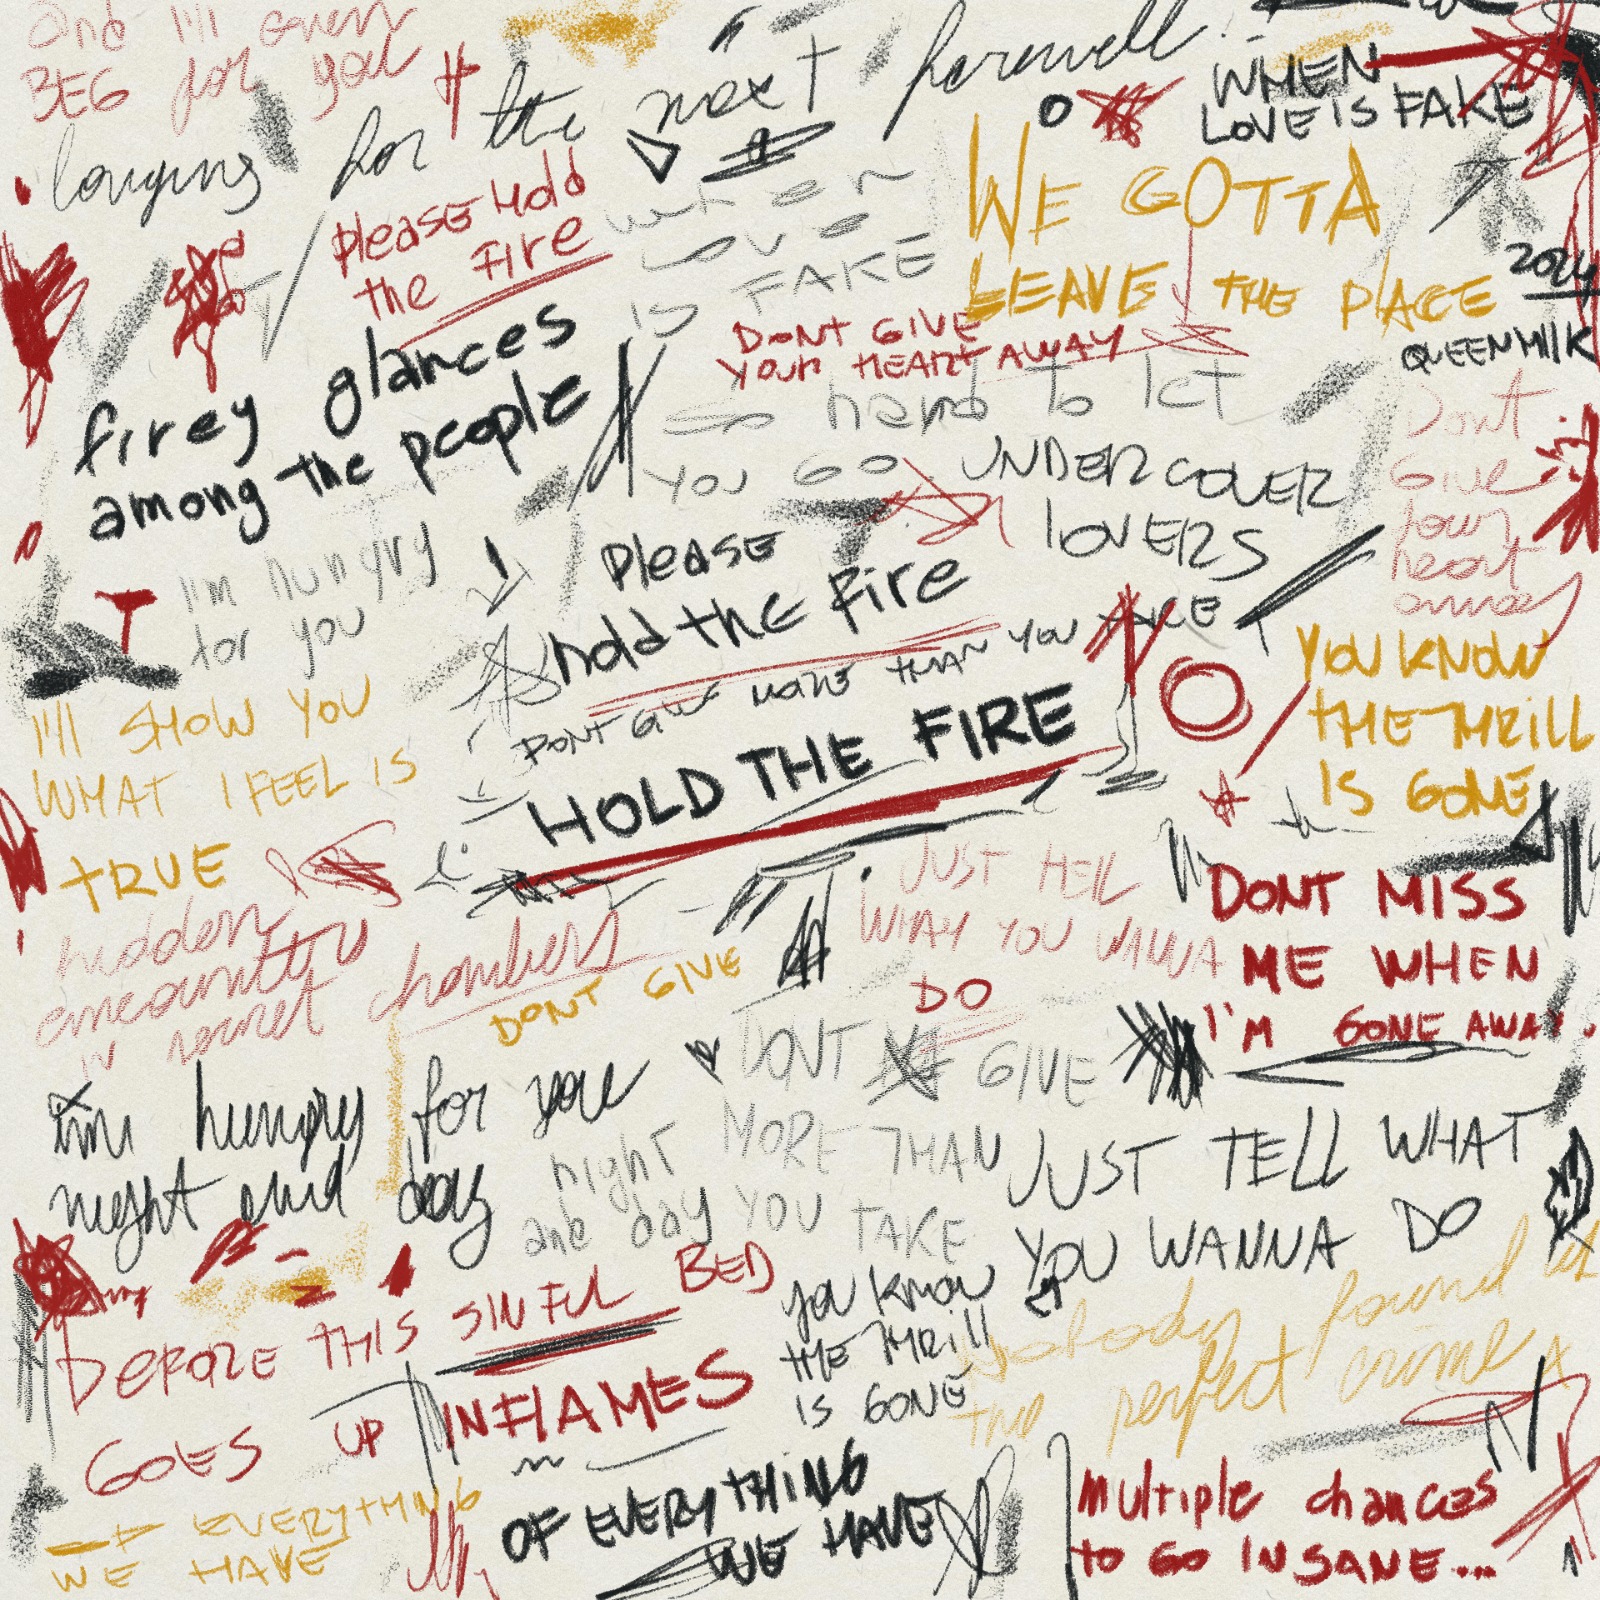 and I'll even
BEG for you
longing for the next farewell
WHEN
LOVE IS FAKE
Please Hold
the Fire
when
love
is FAKE
WE GOTTA
LEAVE THE PLACE
2024
QUEENMILK
DONT GIVE
YOUR HEART AWAY
firey glances
among the people
so hard to let
you GO
UNDERCOVER
lOVERS
Dont
Give
your
heart
away
I'm hungry
for you
Please
hold the Fire
DONT GIVE MORE THAN YOU TAKE
HOLD THE FIRE
YOU KNOW
THE THRILL
IS GONE
I'll SHOW YOU
WHAT I FEEL IS
TRUE
hidden
encounters
in secret chambers
DONT GIVE
JUST TELL
WHAT YOU WANNA
DO
DONT MISS
ME WHEN
I'M GONE AWAY.
im hungry for you
night and day
night
and day
DONT GIVE
MORE THAN
YOU TAKE
JUST TELL WHAT
YOU WANNA DO
BEFORE THIS SINFUL BED
GOES UP IN FLAMES
you know
THE THRILL
IS GONE
Nobody found
the perfect crime
EVERYTHING
WE HAVE
OF EVERYTHING
WE HAVE
Multiple chances
to GO INSANE...